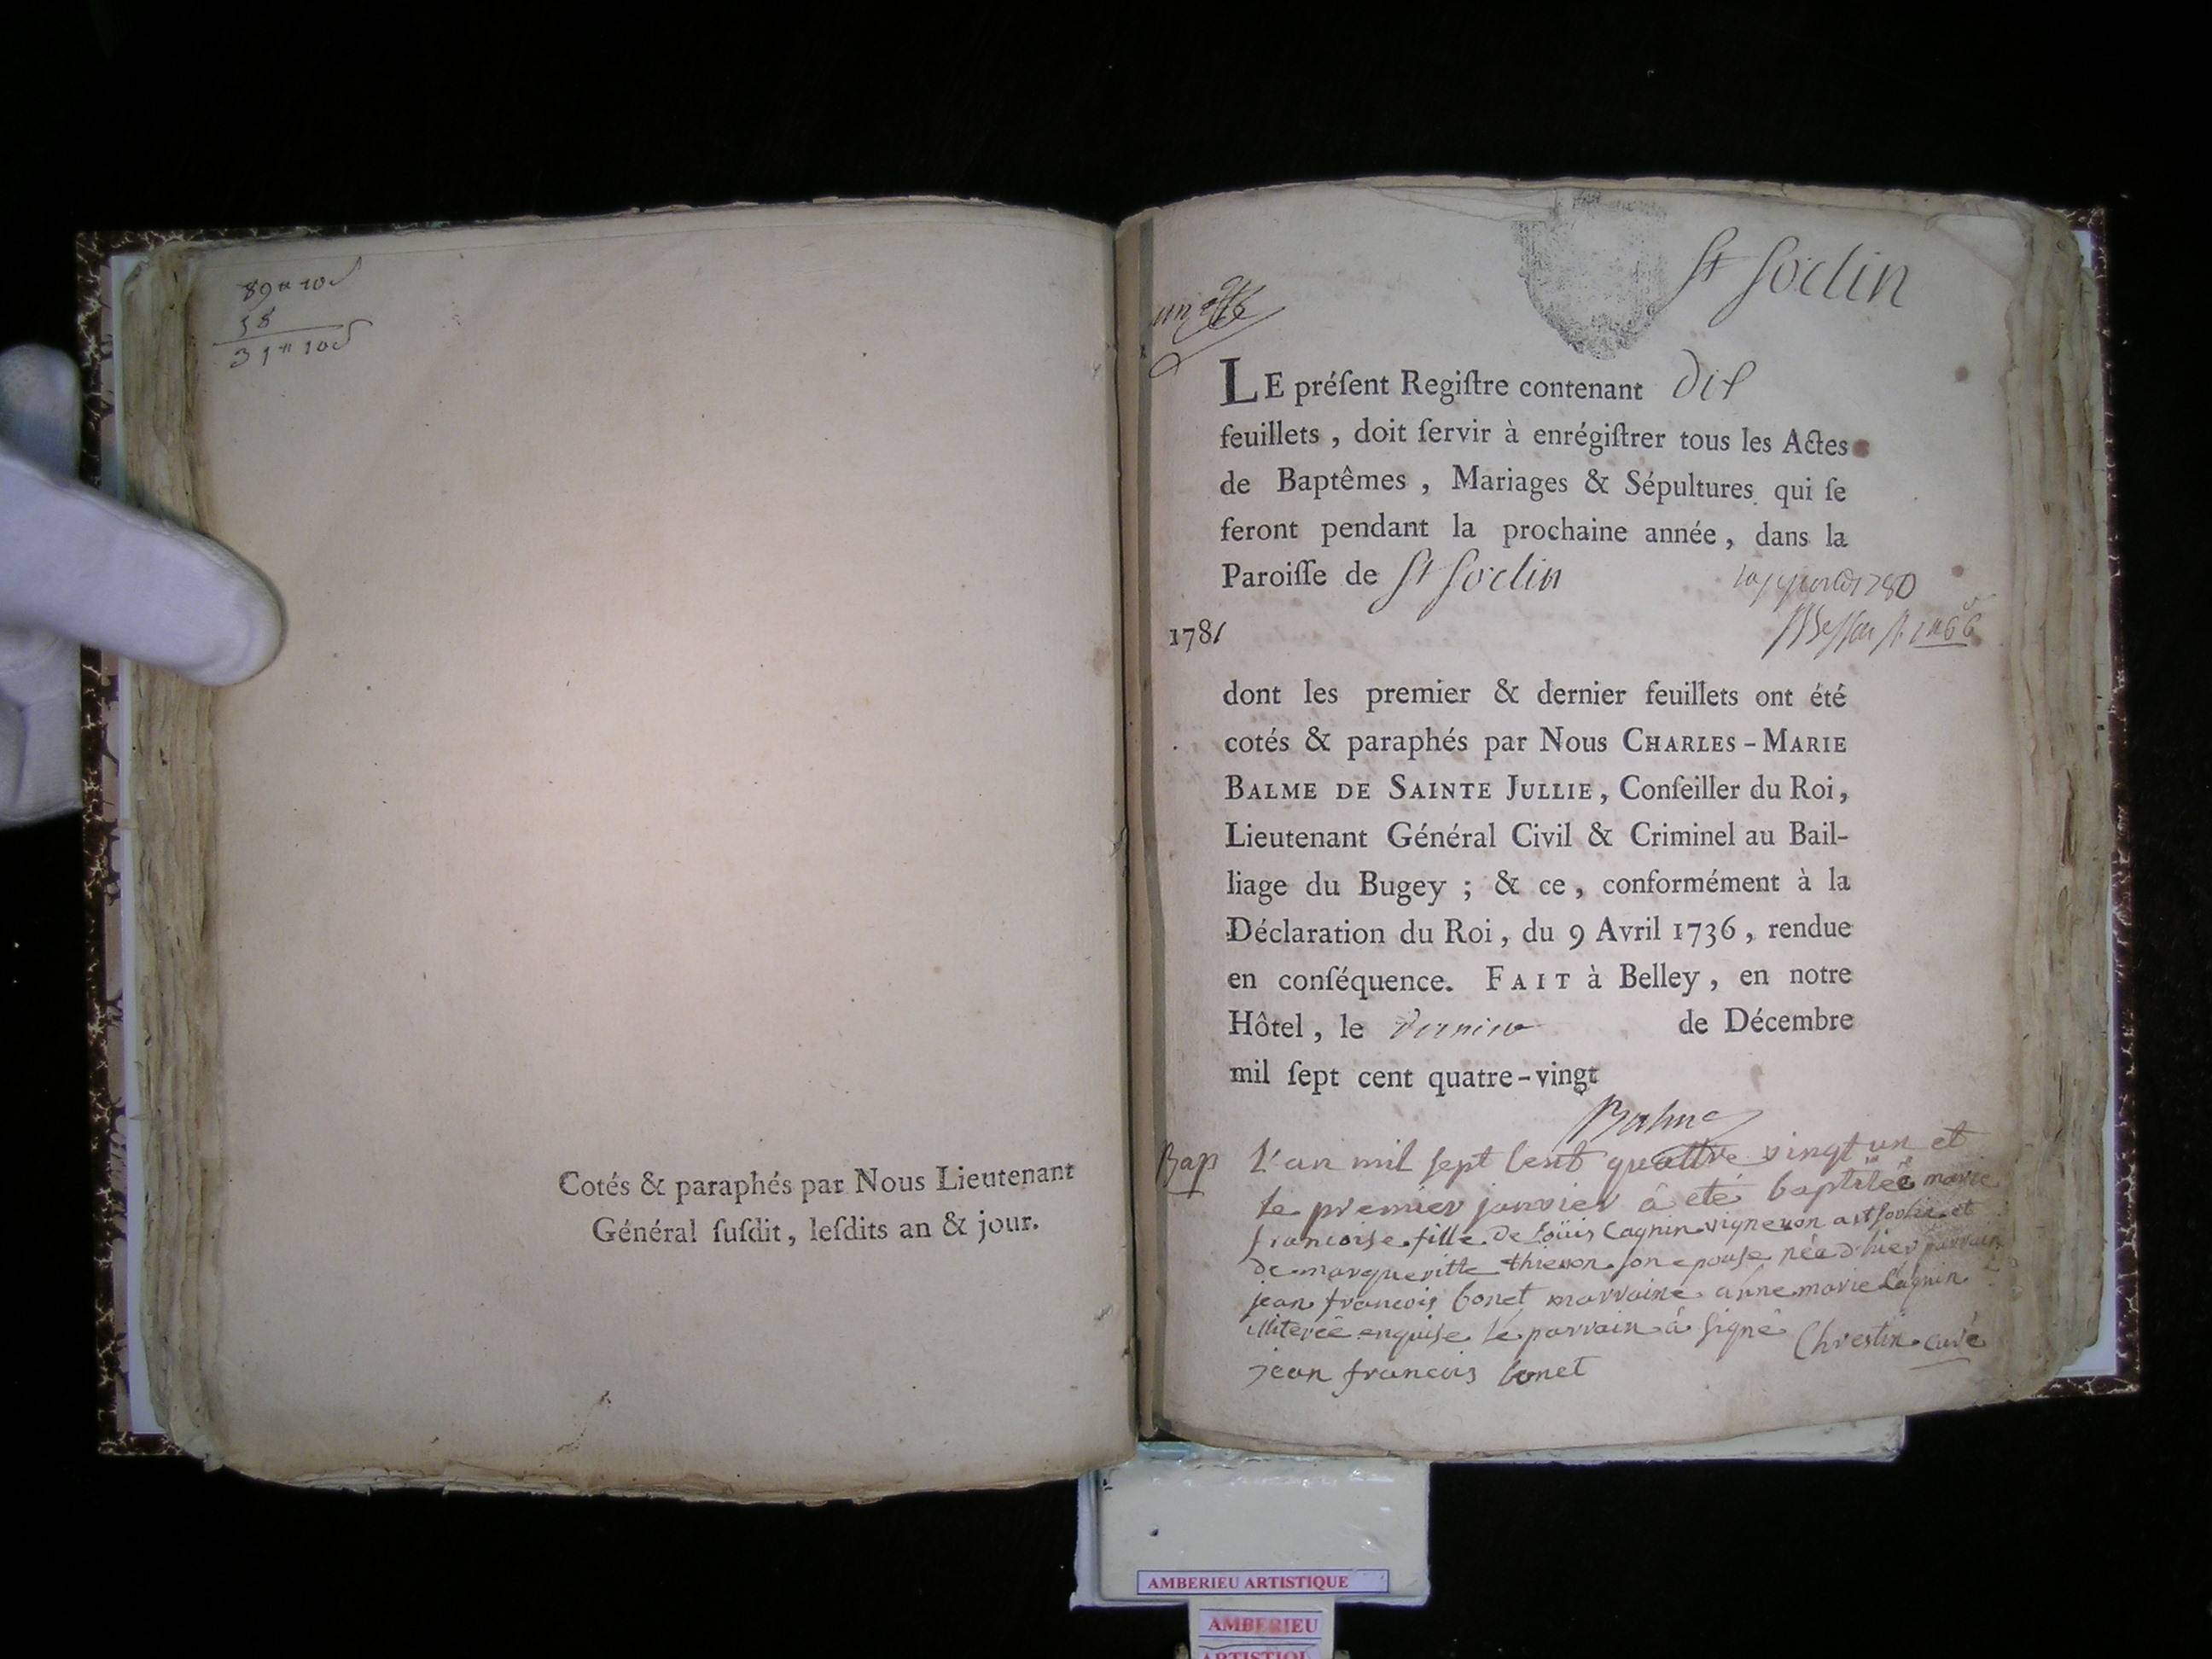 89tt 10s
58
31tt 10s
Cotés & paraphés par Nous Lieutenant
Général ſuſdit, leſdits an & jour.
St Sorlin
LE préſent Regiſtre contenant dix
feuillets, doit ſervir à enrégiſtrer tous les Actes
de Baptêmes, Mariages & Sépultures qui ſe
feront pendant la prochaine année, dans la
Paroiſſe de St Sorlin
1781
dont les premier & dernier feuillets ont été
cotés & paraphés par Nous CHARLES-MARIE
BALME DE SAINTE JULLIE, Conſeiller du Roi,
Lieutenant Général Civil & Criminel au Bail-
liage du Bugey; & ce, conformément à la
Déclaration du Roi, du 9 Avril 1736, rendue
en conſéquence. FAIT à Belley, en notre
Hôtel, le dernier de Décembre
mil ſept cent quatre-vingt
Balme
Bap L'an mil sept cent quattre vingt un et
le premier janvier à eté baptisée marie
francoise fille de Loüis Cagnin vigneron a st sorlin et
de margueritte thievon son epouse née d'hier parrain
jean francois bonet marraine anne marie Cagnin
illiterée enquise le parrain à signé Chrestin curé
jean francois bonet
AMBERIEU ARTISTIQUE
AMBERIEU